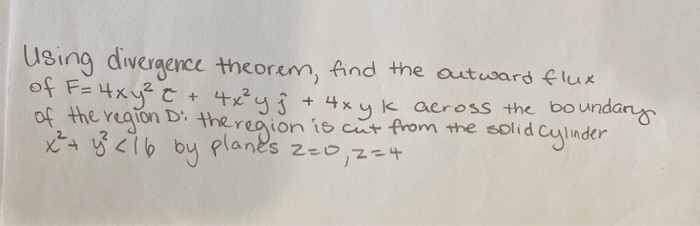 Using divergence theorem, find the outward flux
of F= 4xy² î + 4x²y ĵ + 4xy k across the boundary
of the region D: the region is cut from the solid cylinder
x²+ y² < 16 by planes z=0, z=4